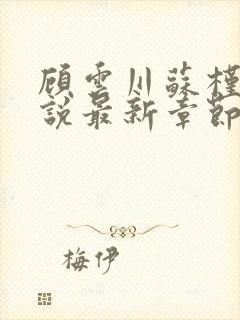 顾雲川蘇槿
說最新章節
梅伊